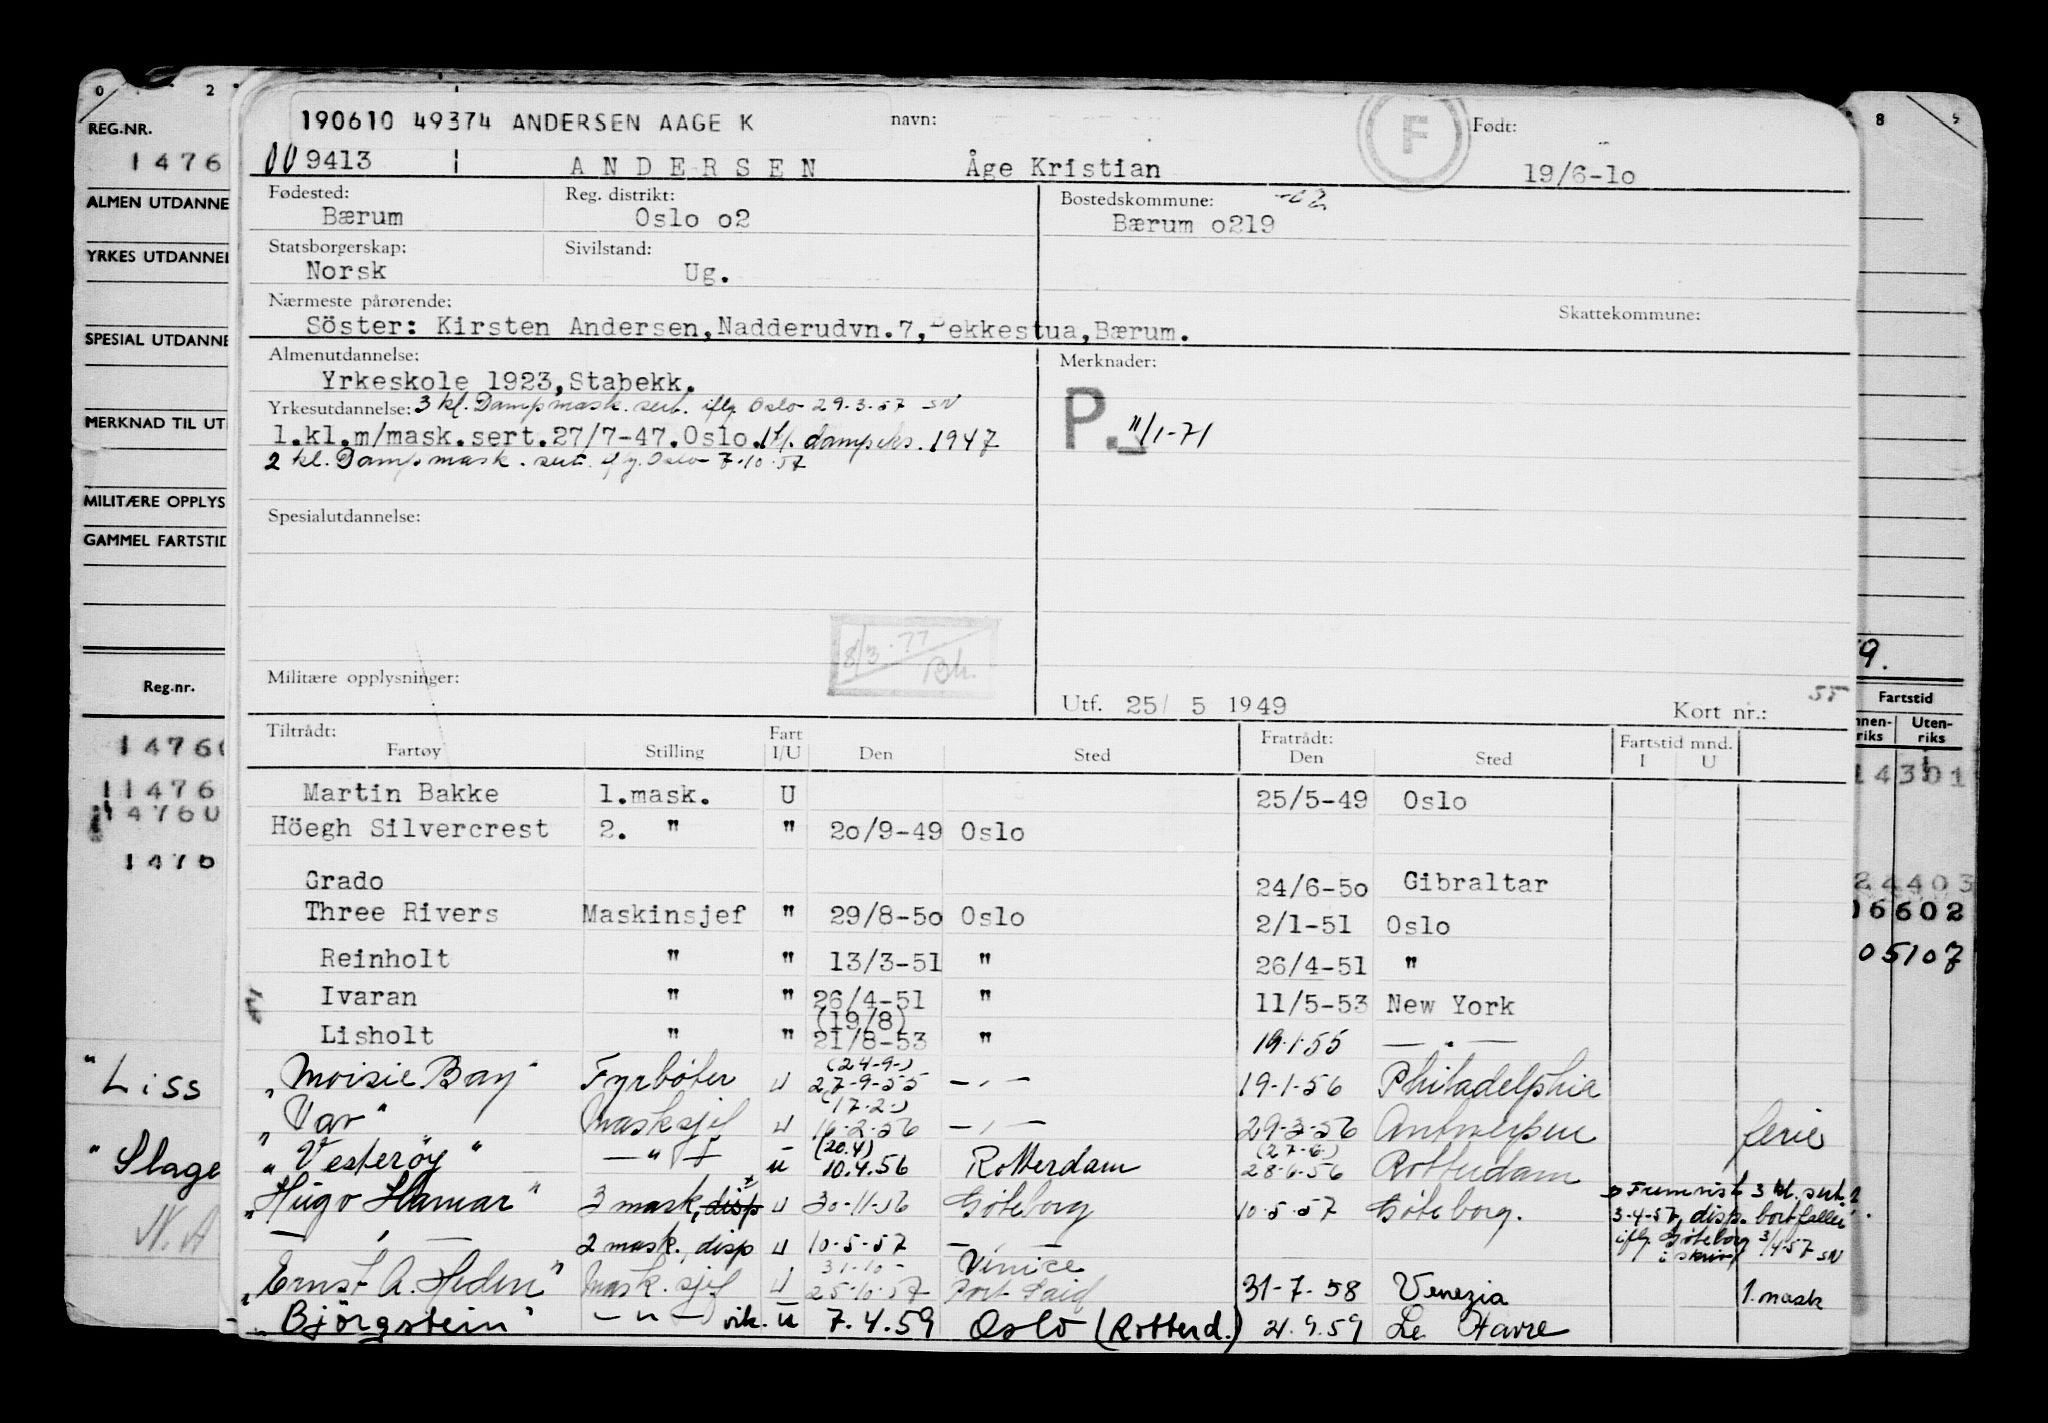 0 2 8 5
REG.NR.
1 4 7 6
ALMEN UTDANNE
YRKES UTDANNEL
SPESIAL UTDANNE
MERKNAD TIL UT
MILITÆRE OPPLYS
GAMMEL FARTSTID
Reg.nr.
1 4 7 6 0
1 1 4 7 6
1 4 7 6 0
1 4 7 6
"Liss
"Slage
N. A
190610 49374 ANDERSEN AAGE K navn: F Født:
009413 1 A N D E R S E N Åge Kristian 19/6-1o
Fødested: Reg. distrikt: Bostedskommune: -02
Bærum Oslo o2 Bærum o219
Statsborgerskap: Sivilstand:
Norsk Ug.
Nærmeste pårørende: Skattekommune:
Söster: Kirsten Andersen,Nadderudvn.7,Bekkestua,Bærum.
Almenutdannelse: Merknader:
Yrkeskole 1923,Stabekk.
Yrkesutdannelse: 3 kl. Dampmask. sert. iflg Oslo 29.3.57 SN
1.kl.m/mask.sert.27/7-47.Oslo. 1 kl. dampeks. 1947 P. 11/1-71
2 kl. Dampmask. sert. iflg. Oslo 7.10.57
Spesialutdannelse:
8/3.77
Bh.
Militære opplysninger:
Utf. 25/ 5 1949 Kort nr.: 55
Tiltrådt: Fart Fratrådt: Fartstid mnd.
Fartøy Stilling I/U Den Sted Den Sted I U
Martin Bakke 1.mask. U 25/5-49 Oslo
Höegh Silvercrest 2. " " 2o/9-49 Oslo
Grado 24/6-5o Gibraltar
Three Rivers Maskinsjef " 29/8-5o Oslo 2/1-51 Oslo
Reinholt " " 13/3-51 " 26/4-51 "
Ivaran " " 26/4-51 " 11/5-53 New York
(19/8)
Lisholt " " 21/8-53 " 19.1.55 — " —
(24-9-)
"Moisie Bay" Fyrböter u 27-9-55 — " — 19-1-56 Philadelphia
(17.2.)
"Var" Masksjef u 16-2-56 — " — 29-3-56 Antwerpen ferie
(20.4) (27-6.)
"Vesteröy" — " — u 10.4.56 Rotterdam 28-6-56 Rotterdam
"Hugo Hamar" 3 mask, disp x u 30-11-56 Göteborg 10.5.57 Göteborg.
x Fremvist 3 kl. sert.
3-4-57, disp. bortfaller
iflg. Göteborg 3/4-57 SN
— " — 2 mask., disp u 10-5-57 — " —
31-10- Venice
"Ernst A. Heden" Mask.sjef u 25-10-57 Port Said 31-7.58 Venezia 1. mask
"Björgstein" — " — vik. u 7.4.59 Oslo (Rotterd.) 21.9.59 Le Havre
9.
Fartstid
nnen-
riks
Uten-
riks
1 4 3 0 1
2 4 4 0 3
0 6 6 0 2
0 5 1 0 7